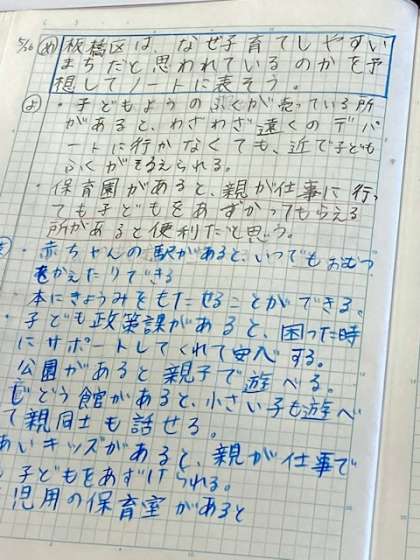 5/16 め 板橋区は、なぜ子育てしやすい
まちだと思われているのかを予
想してノートに表そう。
よ ・子どもようのふくが売っている所
があると、わざわざ遠くのデパ
ートに行かなくても、近で子ども
ふくがそろえられる。
・保育園があると、親が仕事に行っ
ても子どもをあずかってもらえる
所があると便利だと思う。
・赤ちゃんの駅があると、いつでもおむつ
をかえたりできる
本にきょうみをもたせることができる。
・子ども政策課があると、困った時
にサポートしてくれて安心する。
公園があると親子で遊べる。
じどう館があると、小さい子も遊べ
て親同士も話せる。
あいキッズがあると、親が仕事で
子どもをあずけられる。
児用の保育室があると